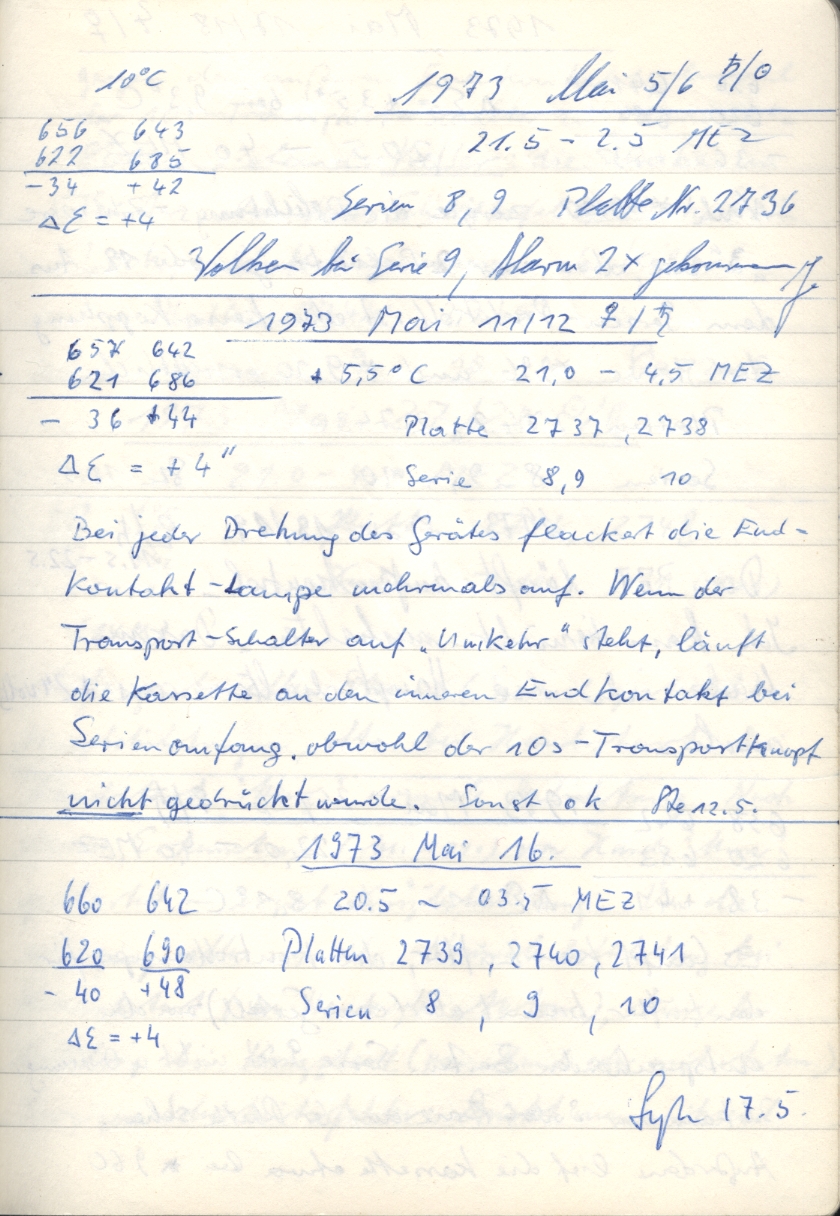 10°C
1973 Mai 5/6 ♄/☉
656 643
21.5 – 2.5 MEZ
622 685
-34 +42
Serien 8, 9 Platte Nr. 2736
Δξ = +4
Wolken bei Serie 9, Alarm 2x gekommen
1973 Mai 11/12 ♀/♄
657 642
621 686 + 5,5°C 21,0 – 4,5 MEZ
- 36 +44
Platte 2737, 2738
Δξ = +4"
Serie 8,9 10
Bei jeder Drehung des Gerätes flackert die End-
kontakt-Lampe mehrmals auf. Wenn der
Transport-Schalter auf „Umkehr“ steht, läuft
die Kassette an den inneren Endkontakt bei
Serienanfang, obwohl der 10s-Transportknopf
nicht gedrückt wurde. Sonst ok Ste 12.5.
1973 Mai 16.
660 642 20.5 – 03.5 MEZ
620 690 Platten 2739, 2740, 2741
- 40 +48
Serien 8, 9, 10
Δξ = +4
17.5.